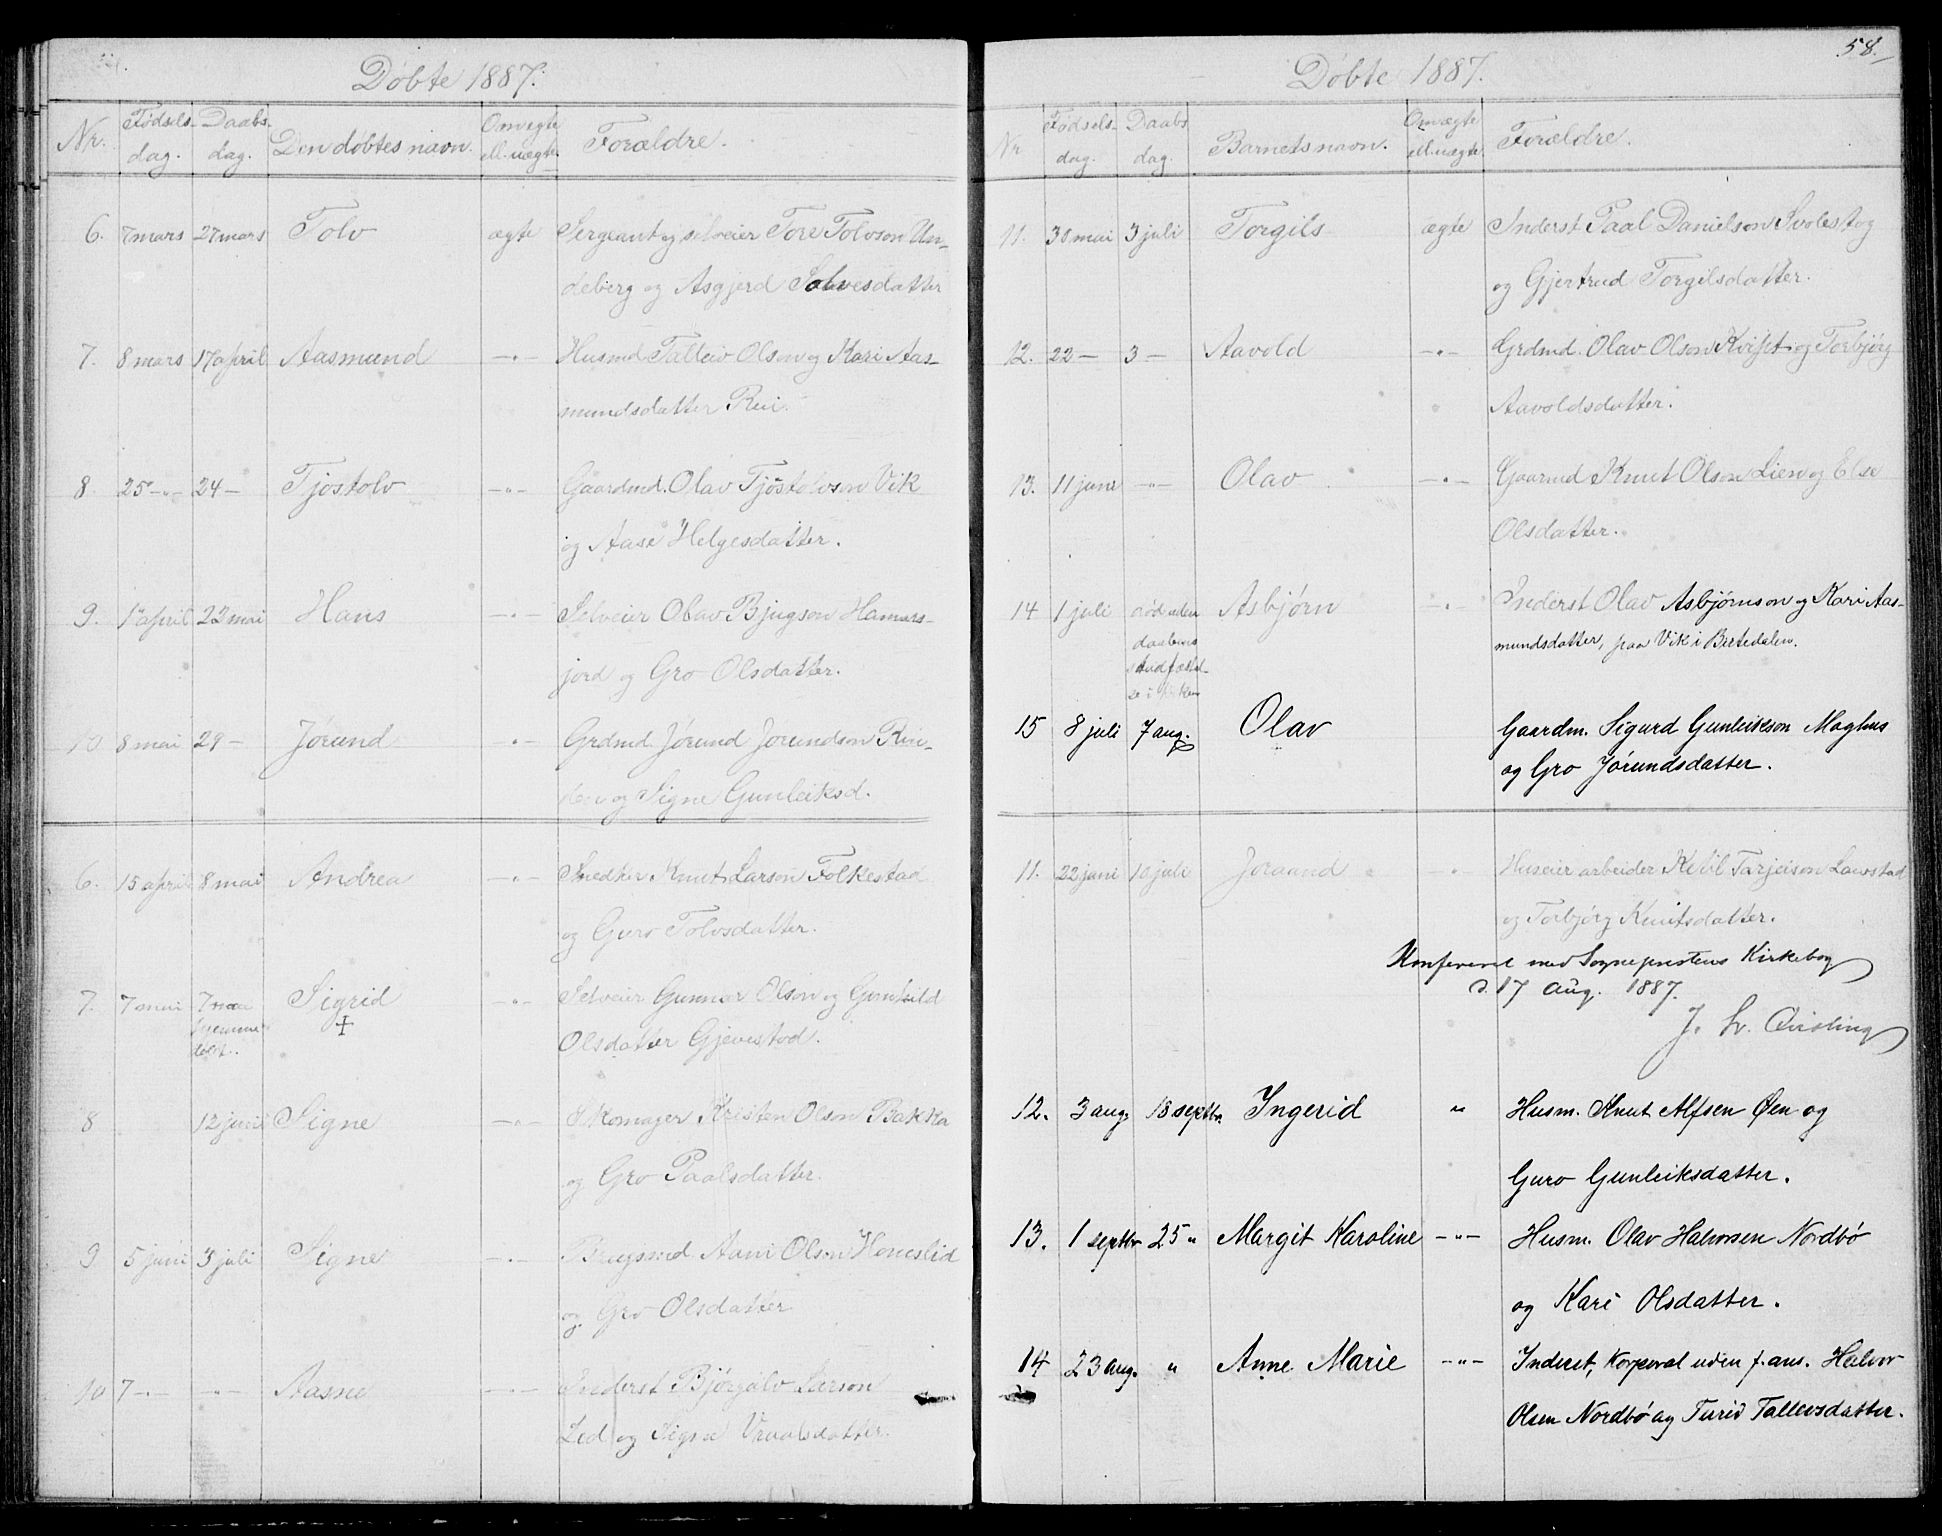 Døbte 1887.
Nr. Fødselsdag. Daabsdag. Den døbtes navn. Om ægte ell. uægte. Forældre.
6. 7 mars 27 mars Tolv ægte Sergeant og selveier Tore Tolvson Un-
deberg og Asgjerd Solvesdatter
7. 8 mars 17 april Aasmund -"- Husmd. Talleiv Olson og Kari Aas-
mundsdatter Rui.
8. 25 -"- 24 - Tjøstolv -"- Gaardmd. Olav Tjøstolvson Vik
og Aase Helgesdatter.
9. 1 april 22 mai Hans -"- Selveier Olav Bjugson Hamars-
jord og Gro Olsdatter.
10 8 mai 29 - Jørund -"- Grdmd. Jørund Jørundson Rui-
og Signe Gunleiksd.
6. 15 april 8 mai Andrea -"- Snedker Knut Larson Folkestad
og Guro Tolvsdatter.
7. 7 mai 7 mai Sigrid -"- Selveier Gunnar Olson og Gunhild
hjemme + Olsdatter Gjevestad.
døbt.
8 12 juni Signe -"- Skomager Kristen Olson Bakka
og Gro Paalsdatter.
9 5 juni 3 juli Signe -"- Brugsmd. Aani Olson Høneslid
og Gro Olsdatter
10 7 -"- -"- Aasne -"- Inderst Bjørgulv Larson
Lid og Signe Vraalsdatter.
58.
Døbte 1887.
Nr Fødselsdag. Daabsdag. Barnets navn. Om ægte ell. uægte Forældre.
11. 30 mai 3 juli Torgils ægte Inderst Paal Danielson Svolestog
og Gjertrud Torgilsdatter.
12. 22 - 3 - Aavold -"- Grdmd. Olav Olson Kvist og Torbjørg
" Aavoldsdatter.
13. 11 june -"- Olav -"- Gaarmd Knut Olson Lien og Else
Olsdatter.
14 1 juli død uden Asbjørn -"- Inderst Olav Asbjørnson og Kari Aas-
daabens mundsdatter, paa Vik i Bertedalen.
stadfæstel-
se i kirken
15 8 juli 7 aug. Olav Gaardm. Sigurd Gunleikson Moghus
og Gro Jørundsdatter.
11. 22 juni 10 juli Joraand -"- Huseier arbeider Ketil Tarjeison Lavstad
og Torbjørg Knutsdatter.
Konfereret med Sogneprestens Kirkebog
d. 17 Aug. 1887.
J. L. Qvisling
12. 3 aug. 18 septbr. Ingerid " Husm. Knut Alfsen Øen og
Guro Gunleiksdatter.
13. 1 septbr 25 " Margit Karoline -"- Husm. Olav Halvorsen Nordbø
og Kari Olsdatter.
14 23 aug. " Anne Marie -"- Inderst, Korporal uden f. ans. Halvor
Olsen Nordbø og Turid Talleivsdatter.